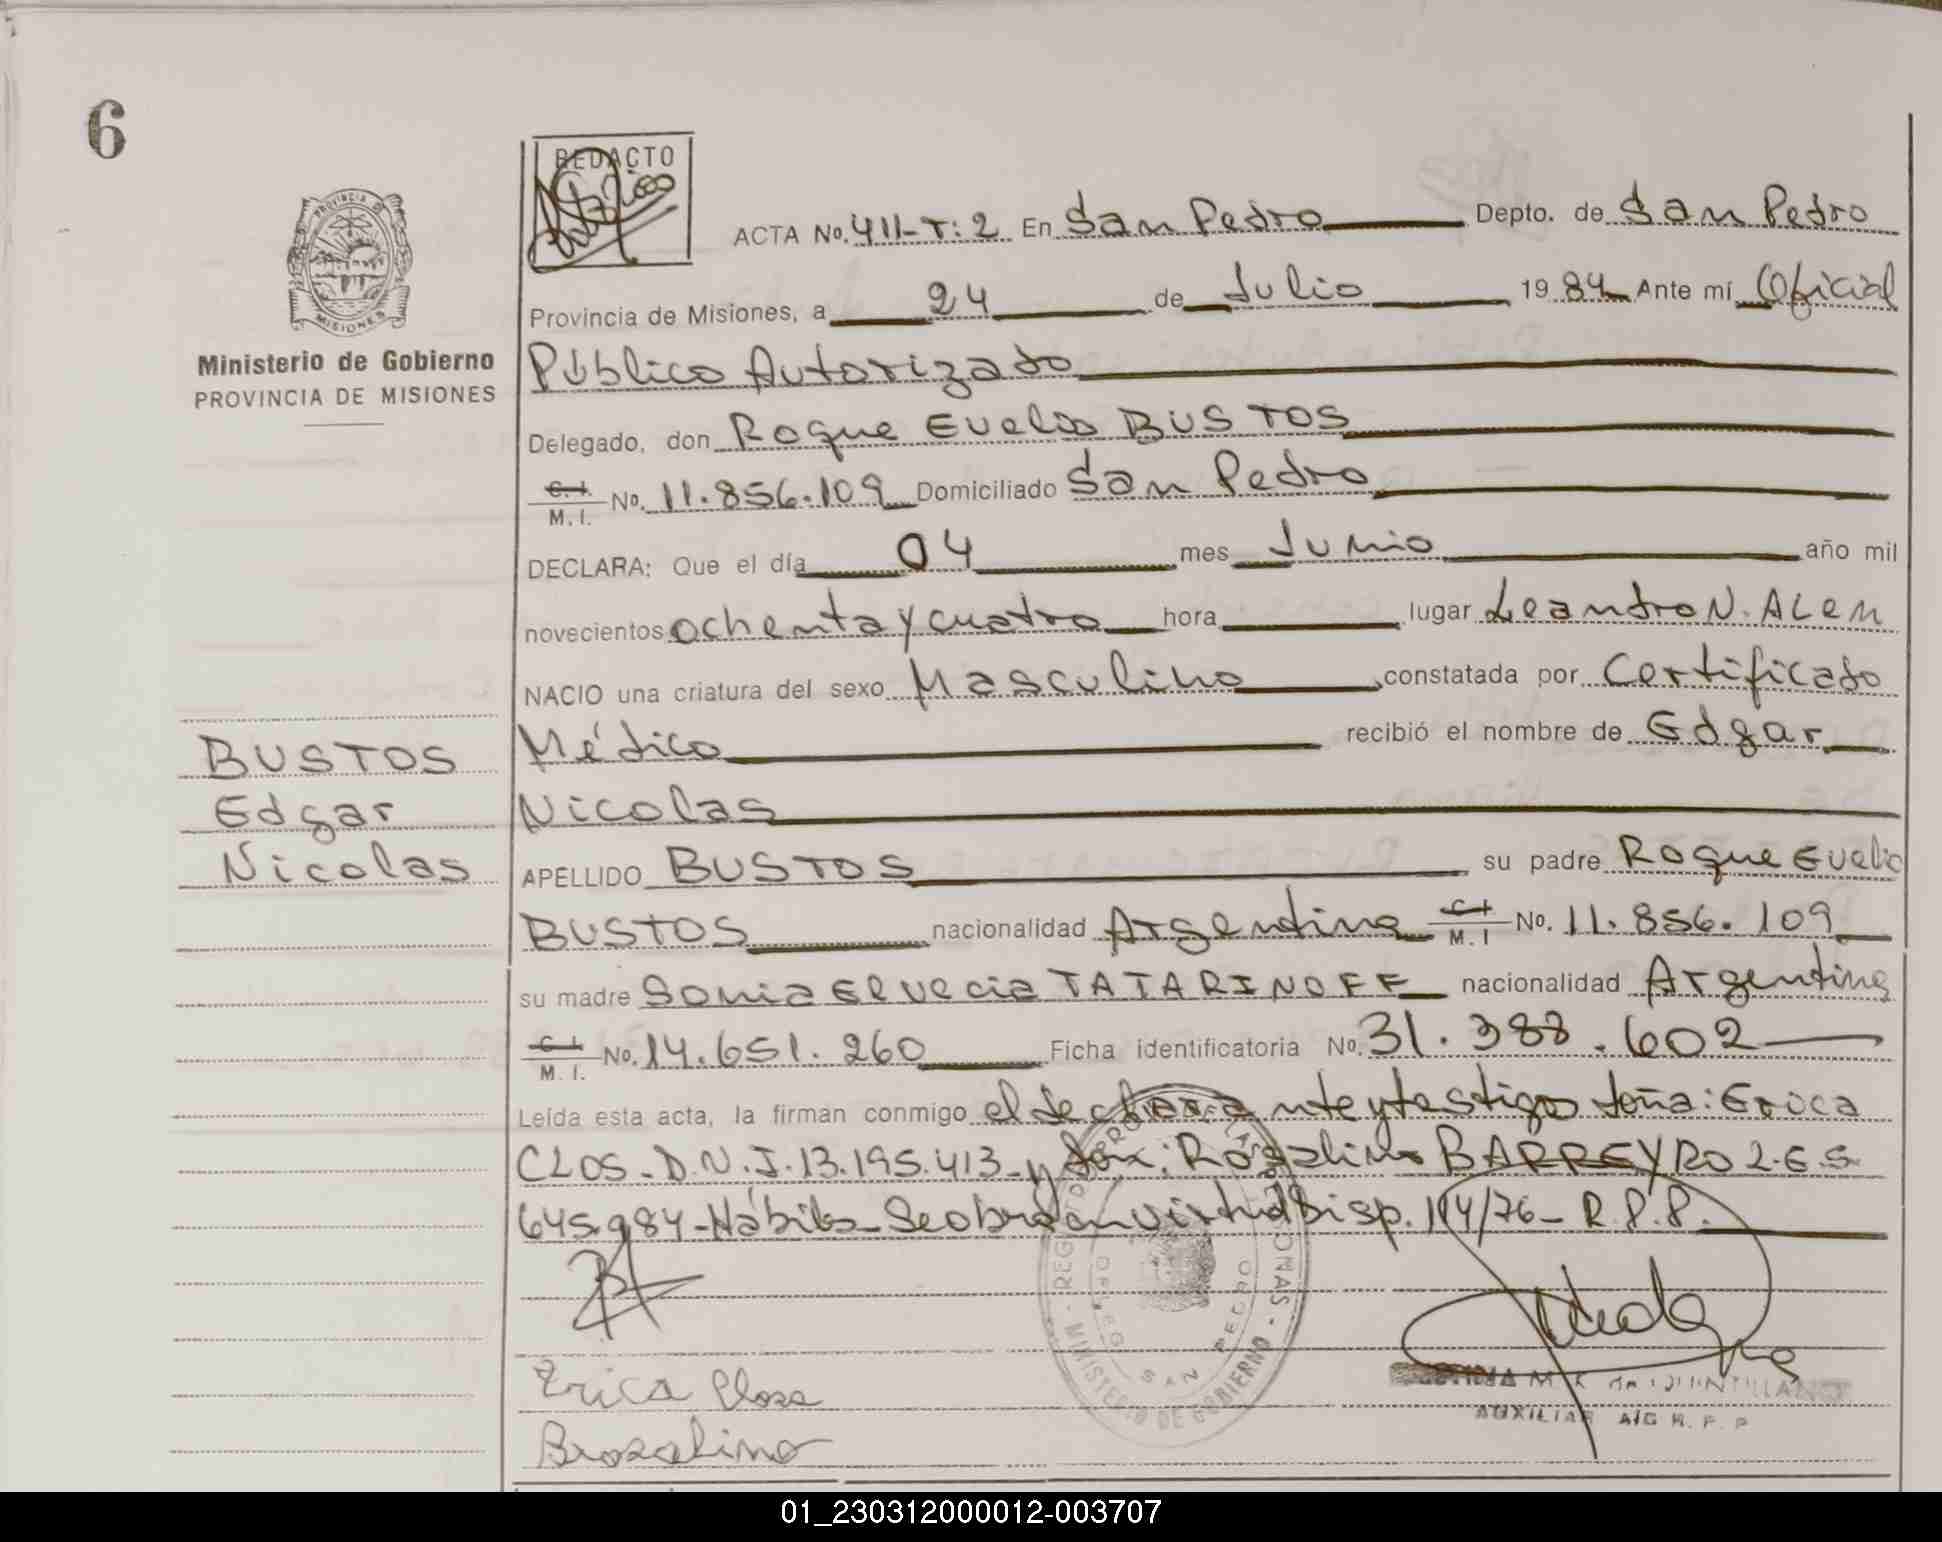 6
REDACTO
ACTA No. 411-T: 2 En San Pedro Depto. de San Pedro
Provincia de Misiones, a 24 de Julio 1984 Ante mí Oficial
Público Autorizado
Delegado, don Roque Evelio BUSTOS
C.I. M.I. No. 11.856.109 Domiciliado San Pedro
DECLARA: Que el día 04 mes Junio año mil
novecientos ochenta y cuatro hora lugar Leandro N. ALem
NACIO una criatura del sexo Masculino constatada por Certificado
Médico recibió el nombre de Edgar
Nicolas
APELLIDO BUSTOS su padre Roque Evelio
BUSTOS nacionalidad Argentina C.I M.I No. 11.856.109
su madre Sonia Elvecia TATARINOFF nacionalidad Argentina
C.I. M.I. No. 14.651.260 Ficha identificatoria No. 31.388.602
Leída esta acta, la firman conmigo el declarante y testigos doña: Erica
CLOS-D.N.I.13.195.413-y don: Rosalino BARREYRO L.E.5.
645.984-Hábiles-Se obra en virtud Disp. 114/76-R.P.P.
Erica Closs
Brosalino
AUXILIAR A/C R.P.P
PROVINCIA DE
MISIONES
Ministerio de Gobierno
PROVINCIA DE MISIONES
BUSTOS
Edgar
Nicolas
MINISTERIO DE GOBIERNO
SAN PEDRO
01_230312000012-003707